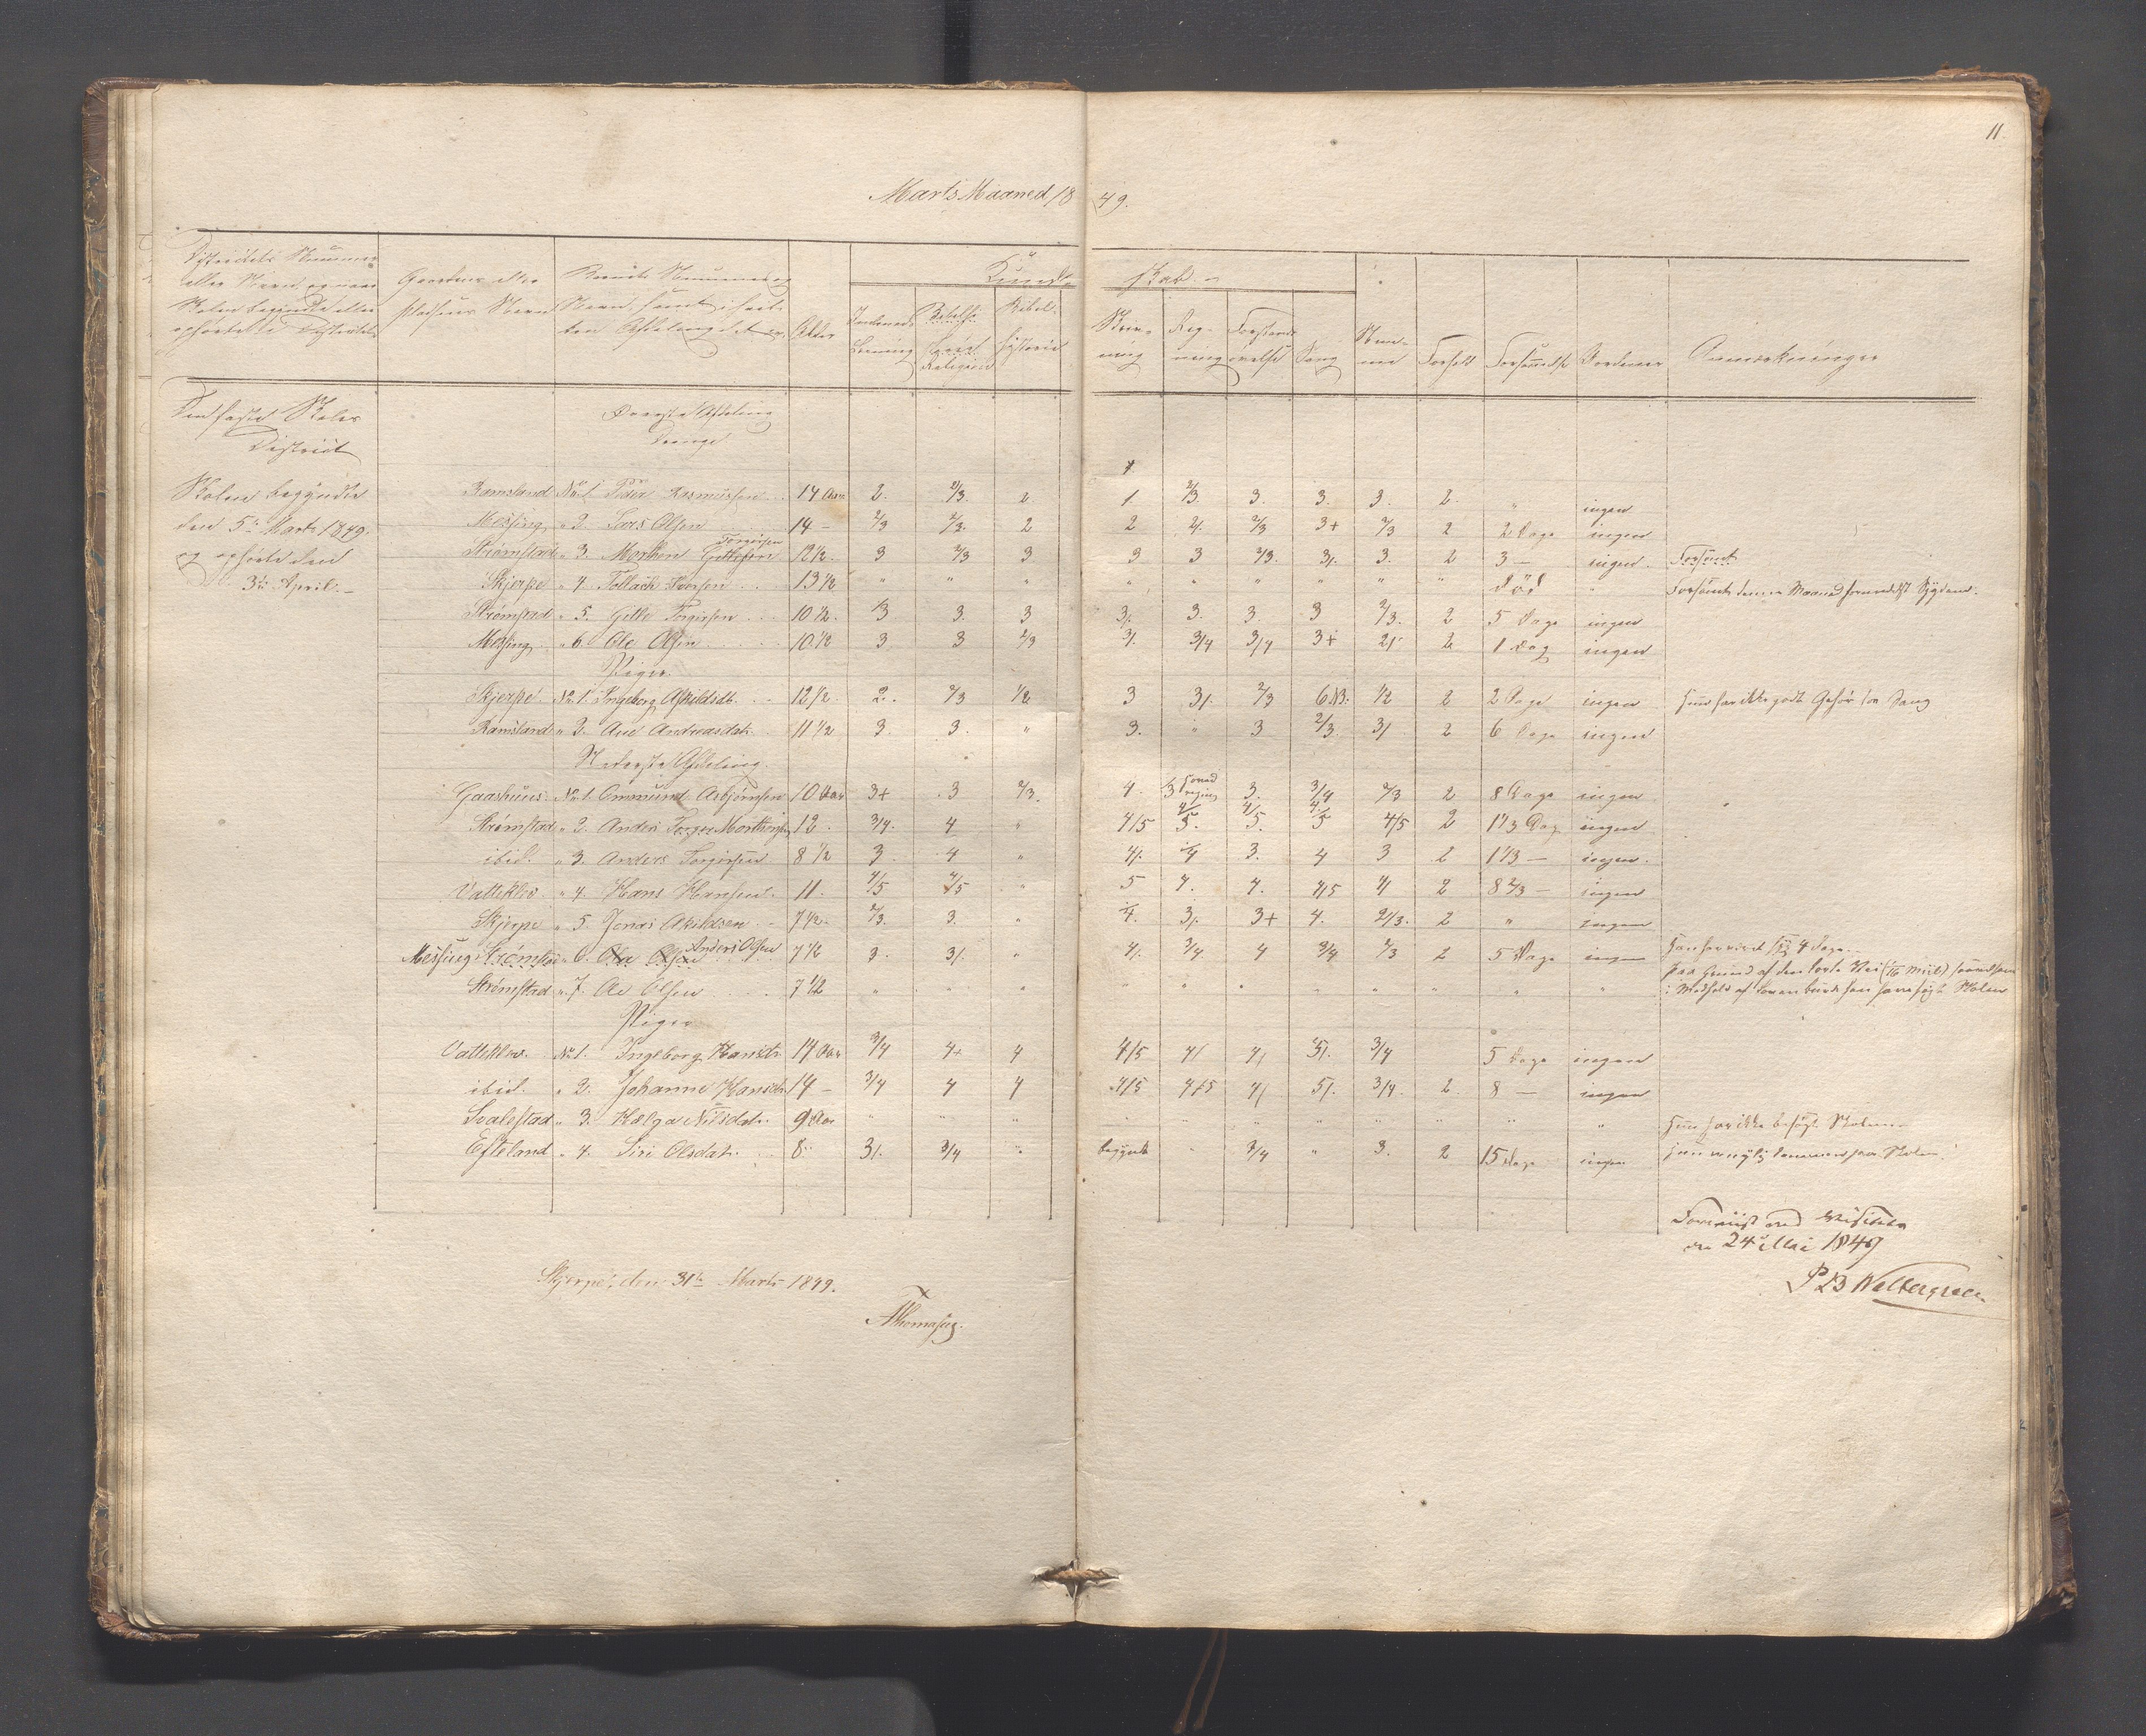 11.
Marts Maaned 1849.
Districtets Nummer eller Navn, og naar Skolen begyndte eller ophørte i Districtet.
Gaardens eller Pladsens Navn
Barnets Nummer og Navn samt i hvilken Afdeling det er.
Alder
Kundskab.
Indenads Læsning
Religion
Bibelhistorie
Skrivning
Regning
Forstandsøvelse
Sang
Nemme
Forhold
Forsømmelse
Anmærkninger
Den faste Skoles District
Øverste Afdeling
Drenge
Skolen begyndte
den 5te Marts 1849.
og ophørte den
3die April.
Ramsland No 1. Peder Rasmussen 14 Aar 2. 2/3. 2 1. 2/3. 3. 3. 3. 2. " ingen
Messing " 2. Lars Olsen 14 - 2/3 2/3. 2 2 2/. 2/3 3+ 2/3 2 2 Dage ingen
Strømstad " 3. Morthen Gittlesen Torgersen 12 1/2. 3 2/3 3 3 3 2/3. 3/. 3. 2 3 - ingen. Forsømt
Skjerpe " 4. Tollach Iversen 13 1/2 " " " " " " " " "
Forsømt denne Maaned formedelst Sygdom.
Strømstad " 5. Gitle Torgersen 10 1/2. 3 3. 3 3/. 3. 3. 3 2/3. 2 5 Dage ingen
Messing " 6. Ole Olsen 10 1/2 3 3 2/3 3/. 3/4 3/4 3+ 2/. 2 1 Dag ingen
Piger.
Skjerpe. No 1. Ingeborg Askildsdt. 12 1/2. 2. 2/3 1/2 3 3/. 2/3 6 NB. 1/2 2 2 Dage ingen Hun har ikke godt Gehør for Sang
Ramsland " 2. Ane Andreasdatr. 11 1/2 3. 3. " 3. " 3 2/3. 3/ 2 6 Dage ingen
Nederste Afdeling.
Gaashuus No 1. Ommund Asbjørnsen 10 Aar 3+ 3 2/3. 4. 3 3. 3/4 2/3 2 8 Dage ingen
Strømstad " 2. Anders Torger Morthensen 12. 3/4. 4 " 4/5 4/5. 4/5. 4/5 4/5 2 1 1/3 Dag ingen
ibid. " 3. Anders Torgersen 8 1/2 3. 4 " 4/. 4 3. 4 3 2 1 1/3 - ingen.
Vatteklev " 4. Hans Hansen. 11. 4/5 4/5 " 5 4. 4. 4/5 4/ 2 8 2/3 - ingen
Skjerpe " 5. Jonas Akildsen 7 1/2. 2/3. 3. " 4. 3/. 3+ 4. 2/3. 2 " ingen
Messing Strømstad " 6. Ola Olsen Anders Olsen 7 1/2 3. 3/. " 4/. 3/4 4 3/4 2/3 2 5 Dage ingen
Strømstad " 7. Ae Olsen 7 1/2 " " " " " " " " " "
Paa Grund af den korte Vei (1/16 Miil)
Piger
Vatteklev. No 1. Ingeborg Hansdtr. 14 Aar 3/4 4+ 4 4/5 4/ 4/ 5/. 3/4 5 Dage ingen
ibid. " 2. Johanne Hansdtr. 14 - 3/4 4 4 4/5 4/5 4/ 5/. 3/4. 2. 8 - ingen
Svalestad " 3. Helga Nilsdatr. 9 Aar " " " " " " " " " " " Hun har ikke besøgt Skolen
Efteland " 4. Siri Olsdatr. 8. 3/. 3/4 " begyndt " 3/4 " 3. 2 15 Dage ingen
Skjerpe, den 31te Marts 1849.
Thomassen.
Foreviist ved Visitats
den 24de Mai 1849